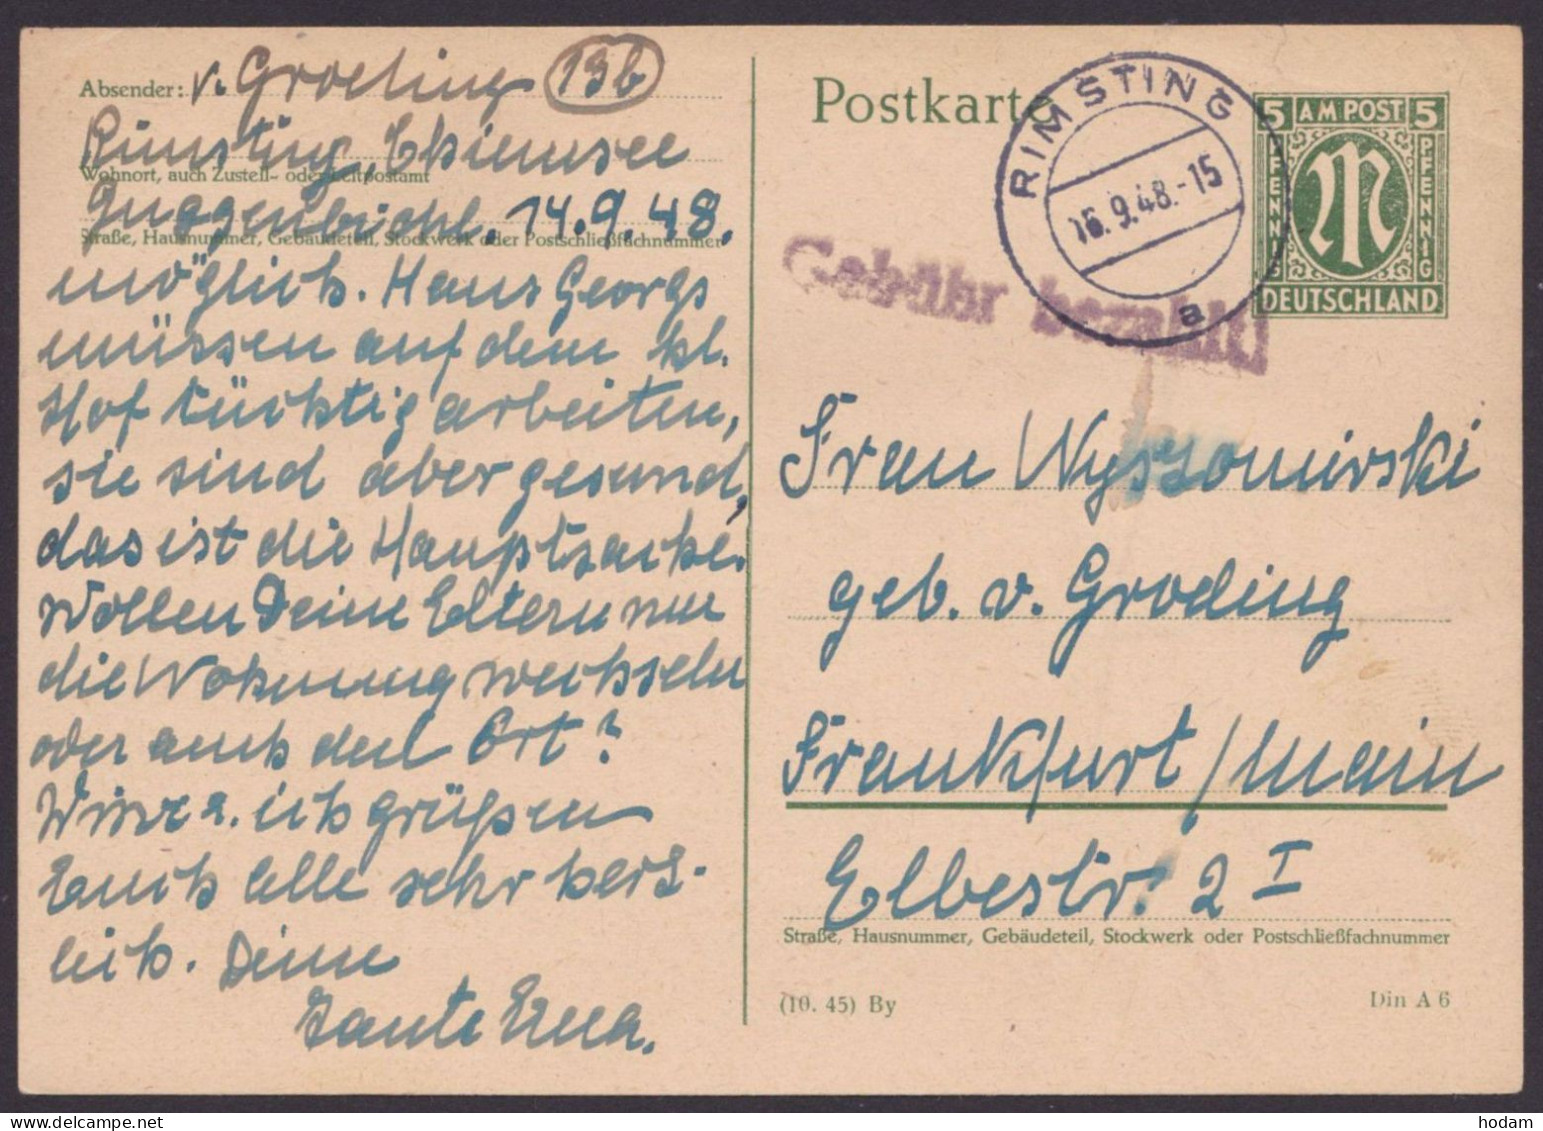 Absender: v. Groeling (13b)
Rimsting, Chiemsee
Wohnort, auch Zustell- oder Leitpostamt
Guggenbichl. 14.9.48.
Straße, Hausnummer, Gebäudeteil, Stockwerk oder Postschließfachnummer
möglich. Hans Georgs
müssen auf dem kl.
Hof tüchtig arbeiten,
sie sind aber gesund,
das ist die Hauptsache.
Wollen Deine Eltern nur
die Wohnung wechseln
oder auch den Ort?
u. ich grüßen
Euch alle sehr herz-
lich. Deine
Tante Erna.
Postkarte
RIMSTING
16.9.48.-15
a
5 AM POST 5
PFENNIG M PFENNIG
DEUTSCHLAND
Gebühr bezahlt!
Frau Wyssomirski
geb. v. Groeling
Frankfurt/Main
Elbestr. 2 I
Straße, Hausnummer, Gebäudeteil, Stockwerk oder Postschließfachnummer
(10. 45) By
Din A 6
hodam